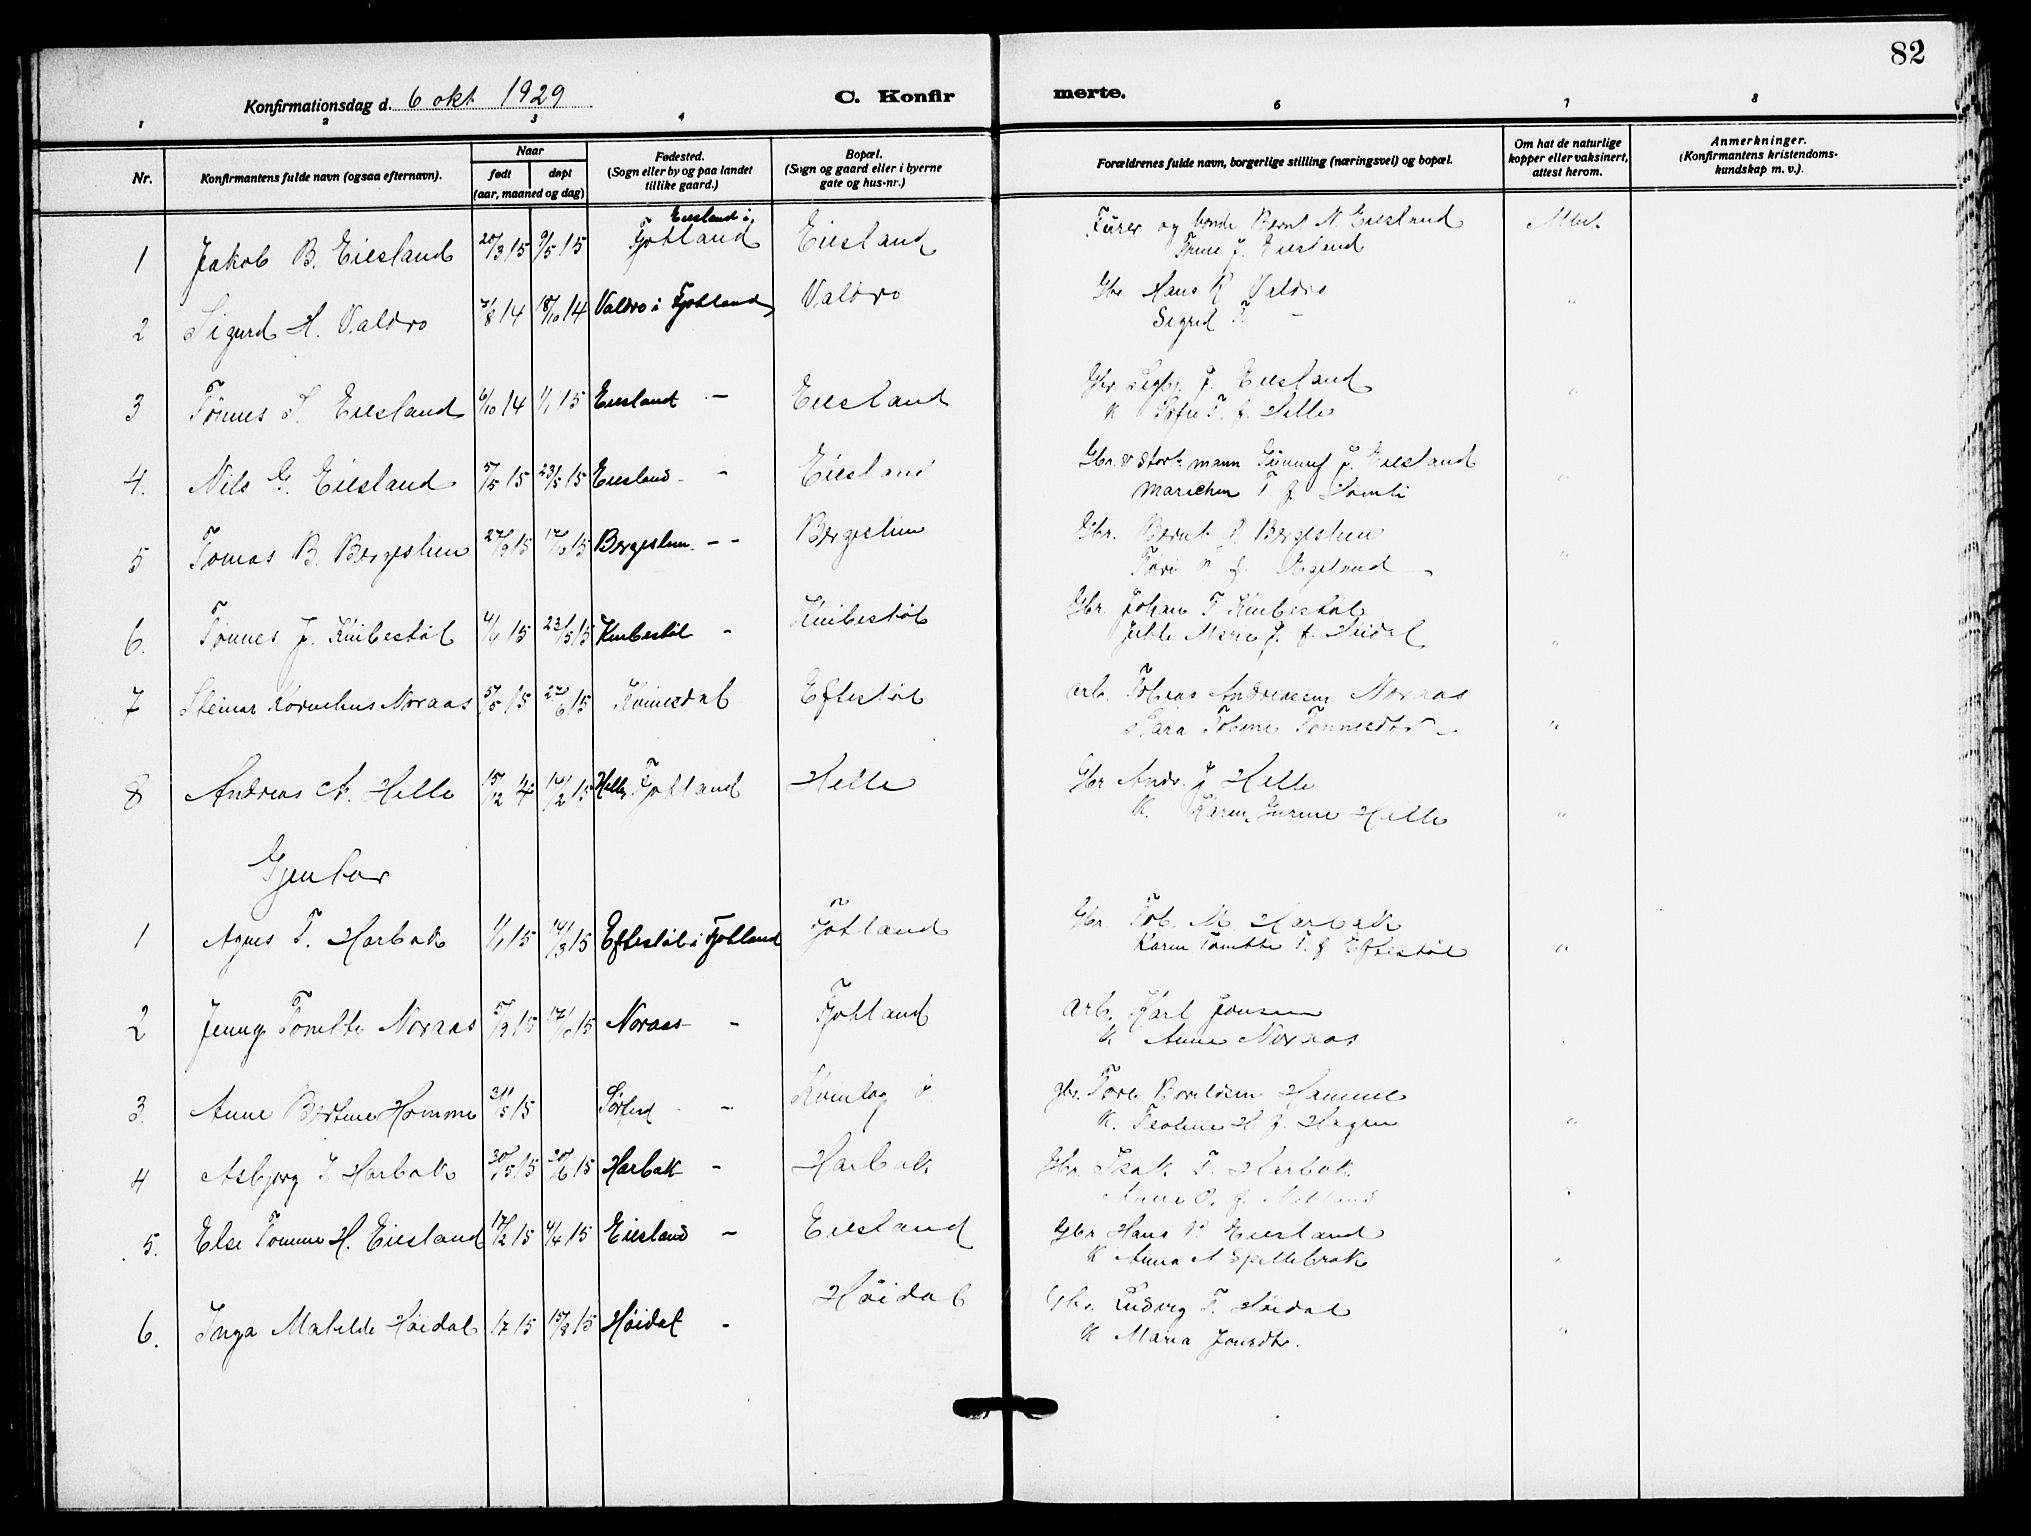 82
Konfirmationsdag d. 6 okt 1929
C. Konfir merte.
1 2 3 4 6 7 8
Nr.
Konfirmantens fulde navn (ogsaa efternavn).
Naar
født døpt
(aar, maaned og dag)
Fødested.
(Sogn eller by og paa landet
tillike gaard.)
Bopæl.
(Sogn og gaard eller i byerne
gate og hus-nr.)
Forældrenes fulde navn, borgerlige stilling (næringsvei) og bopæl.
Om hat de naturlige
kopper eller vaksinert,
attest herom.
Anmerkninger.
(Konfirmantens kristendoms-
kundskap m. v.).
Eiesland i
1 Jakob B. Eiesland 20/3 15 9/5 15 Fjotland Eiesland og bonde Bernt N Eiesland
J. Eiesland
2 Sigurd H. Valdro 7/8 14 18/10 14 Valdro i Fjotland Valdro Gbr Hans R Valdro "
Sigrid T. –
3 Tønnes S. Eiesland 6/10 14 1/1 15 Eiesland – Eiesland Gbr. J. Eiesland "
K T. f. Helle
4. Nils G. Eiesland 5/5 15 23/5 15 Eiesland – Eiesland Gbr. & mann J. Eiesland "
T f.
5 Tomas B. Bergestien 27/9 15 17/10 15 – – Gbr. Bernt "
f.
6. Tønnes J. Knibestøl 4/1 15 23/5 15 Knibestøl – Knibestøl Gbr. Johan T Knibestøl "
J. f.
7 Steinar Kornelius Noraas 5/5 15 27/6 15 Kvinesdal Eftestøl arb. Tobias Andreassen Noraas "
Sara Tobine Tønnesdtr –
8 Andreas A. Helle 15/12 4 14/2 15 Helle Fjotland Helle Gbr Andr. J Helle "
K. Karen Gurine Helle
Gjenter
1 Agnes T. Harbak 1/1 15 14/3 15 Eftestøl i Fjotland Fjotland Gbr. Tob. M. Harbak "
Karen Tonette T. f Eftestøl
2 Jenny Tonette Noraas 5/9 15 17/10 15 Noraas – Fjotland arb. Karl Jonsen
K Anne Noraas
3. Anne Bertine Homme 31/5 15 – gbr. Tore "
K. Teoline H f. Hagen
4 Asbjørg I. Harbak 30/5 15 20/6 15 Harbak – Harbak Gbr. Isak T. Harbak "
Anna O. f.
5. Else Tomine H. Eiesland 17/2 15 4/4 15 Eiesland – Eiesland Gbr Hans Eiesland "
K Anna A Spillebrok
6. Inga Matilde Høidal 1/7 15 15/8 15 Høidal – Høidal Gbr. Ludvig T. Høidal "
K Maria Jonsdtr.